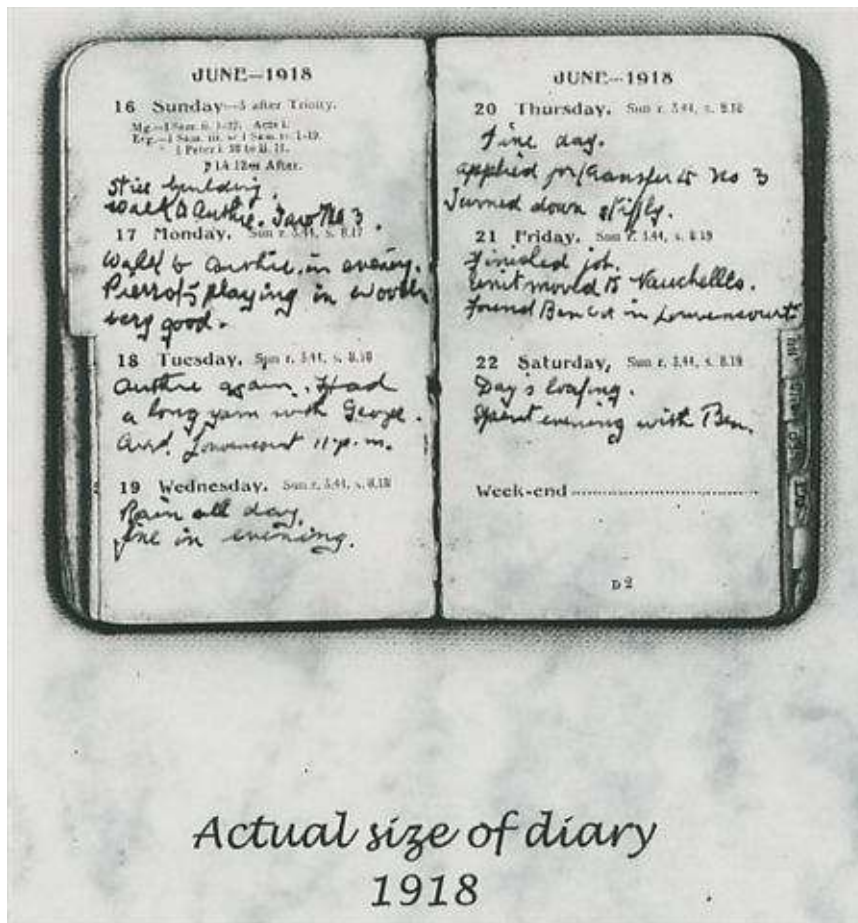 JUNE—1918
16 Sunday—3 after Trinity.
Mg.—1 Sam. ii. 1-27. Acts i.
Evg.—1 Sam. iii. or 1 Sam. iv. 1-19.
1 Peter i. 22 to ii. 11.
1.12 Aft.
Still building.
Walk to Authie. Saw No 3.
17 Monday. Sun r. 3.44, s. 8.17
Walk to Authie in evening.
Pierrots playing in woods
very good.
18 Tuesday. Sun r. 3.44, s. 8.18
Authie again. Had
a long yarn with George.
Arrd. Louvencourt 11 p.m.
19 Wednesday. Sun r. 3.44, s. 8.18
Rain all day.
fine in evening.
JUNE—1918
20 Thursday. Sun r. 3.44, s. 8.18
Fine day.
applied for transfer to No 3
Turned down stiffly.
21 Friday. Sun r. 3.44, s. 8.19
Finished job.
Unit moved to Vauchelles.
Found Ben in Louvencourt
22 Saturday, Sun r. 3.44, s. 8.19
Day's loafing.
Spent evening with Ben.
Week-end
D 2
Actual size of diary
1918